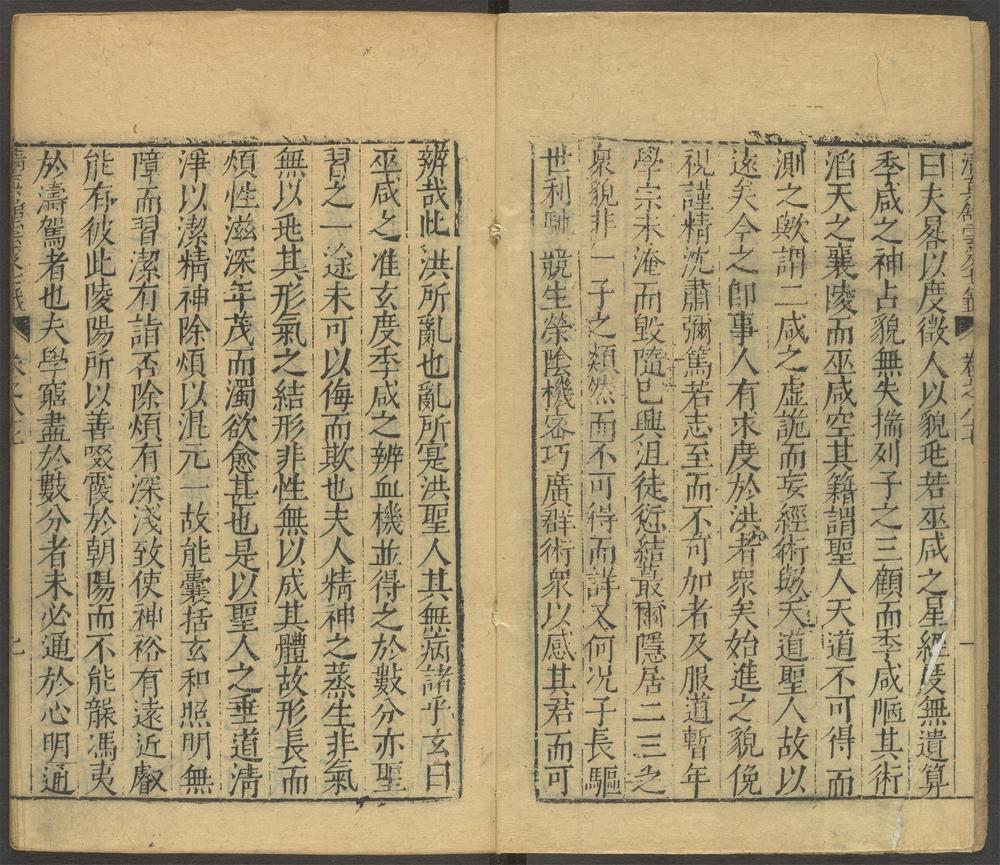 曰夫畧以度徵人以貌玭若巫咸之星經度無遺算
季咸之神占貌無失擋列子之三顧而季咸陋其術
滔天之襄陵而巫咸空其籍謂聖人天道不可得而
測之歟謂二咸之虚詭而妄經術歟天道聖人故以
遠矣今之即事人有求度於洪者衆矣始進之貌俛
視謹精沈肅彌篤若志至而不可加者及服道暫年
學宗未淹而毀隨已興沮徒愆結蕞爾隱居二三之
衆貌非一子之頽然而不可得而詳又何况子長驅
世利馳競生榮陰機宻巧廣群術衆以惑其君而可
辨哉此洪所亂也亂所寔洪聖人其無病諸乎玄曰
巫咸之准玄度季咸之辨血機並得之於數分亦聖
習之一途未可以侮而欺也夫人精神之蒸生非氣
無以玭其形氣之結形非性無以成其體故形長而
煩性滋深年茂而濁欲愈甚也是以聖人之垂道清
淨以潔精神除煩以混元一故能囊括玄和照明無
障而習潔有詣否除煩有深淺致使神裕有遠近叡
能有彼此陵陽所以善啜霞於朝陽而不能躲馮夷
於濤駕者也夫學窮盡於數分者未必通於心明通
卷之八七
九